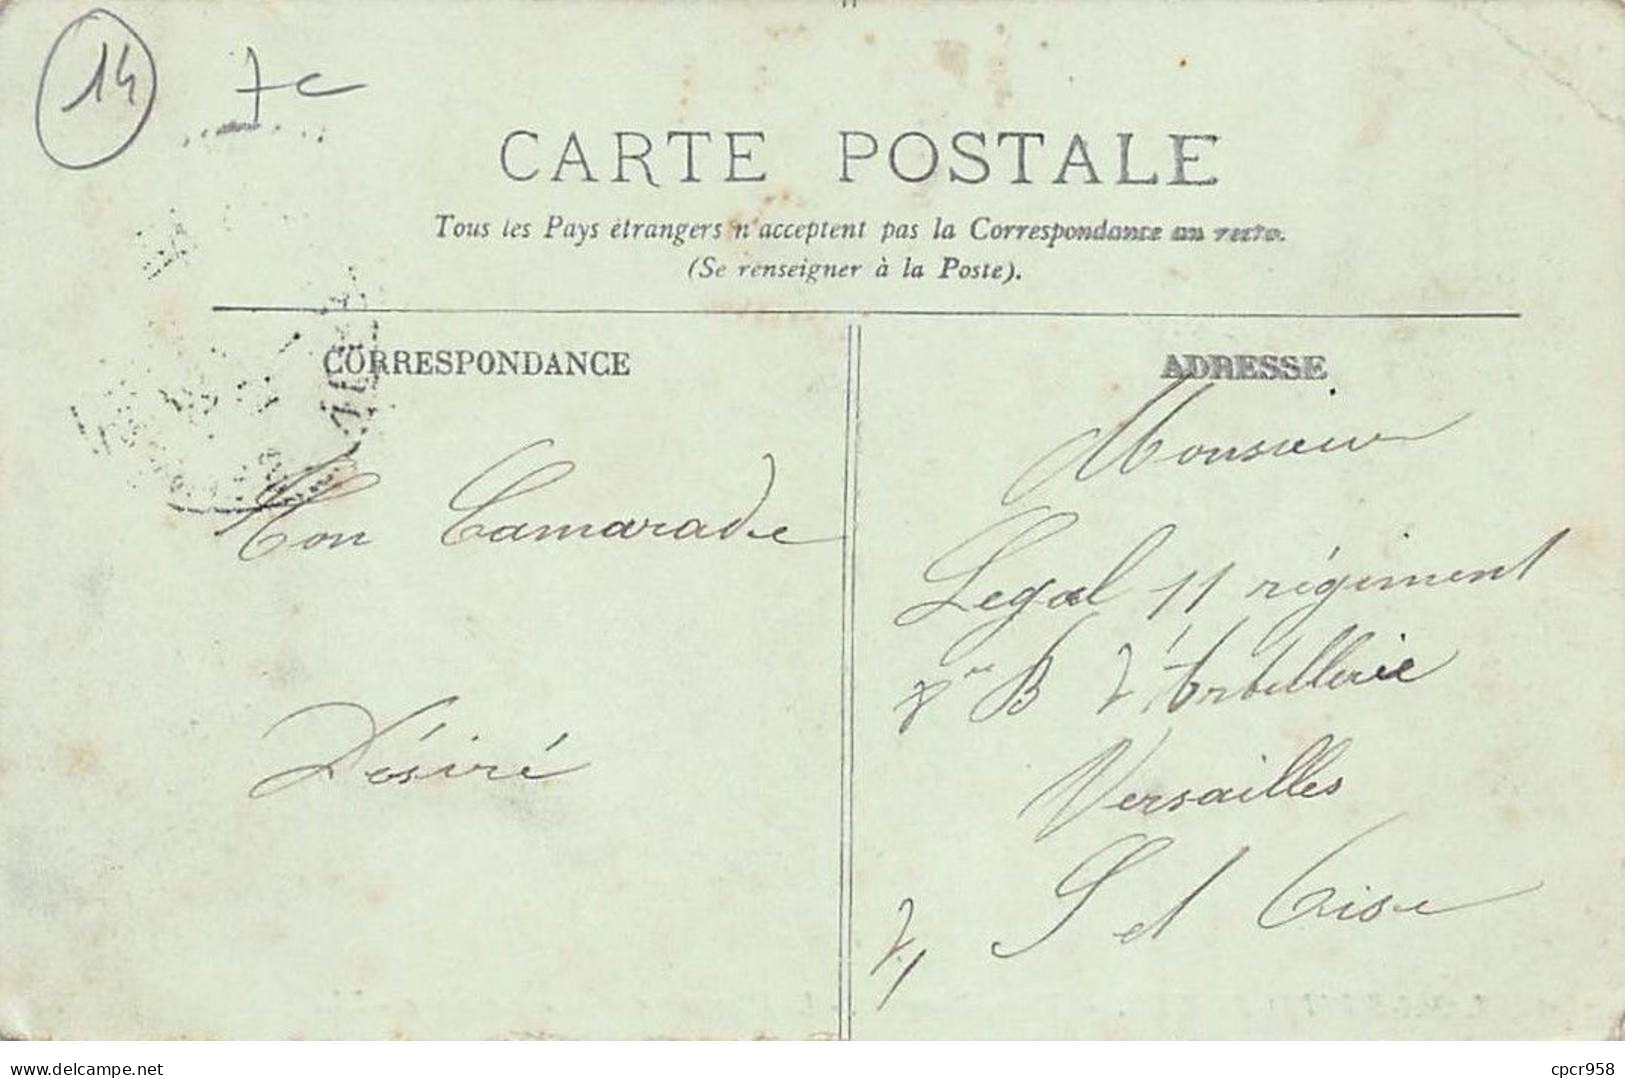 14
7c
CARTE POSTALE
Tous les Pays étrangers n'acceptent pas la Correspondance au recto.
(Se renseigner à la Poste).
CORRESPONDANCE
Ton Camarade
Désiré
ADRESSE
Monsieur
Legal 11 régiment
B d'Artillerie
Versailles
S et Oise
www.delcampe.net
cpcr958